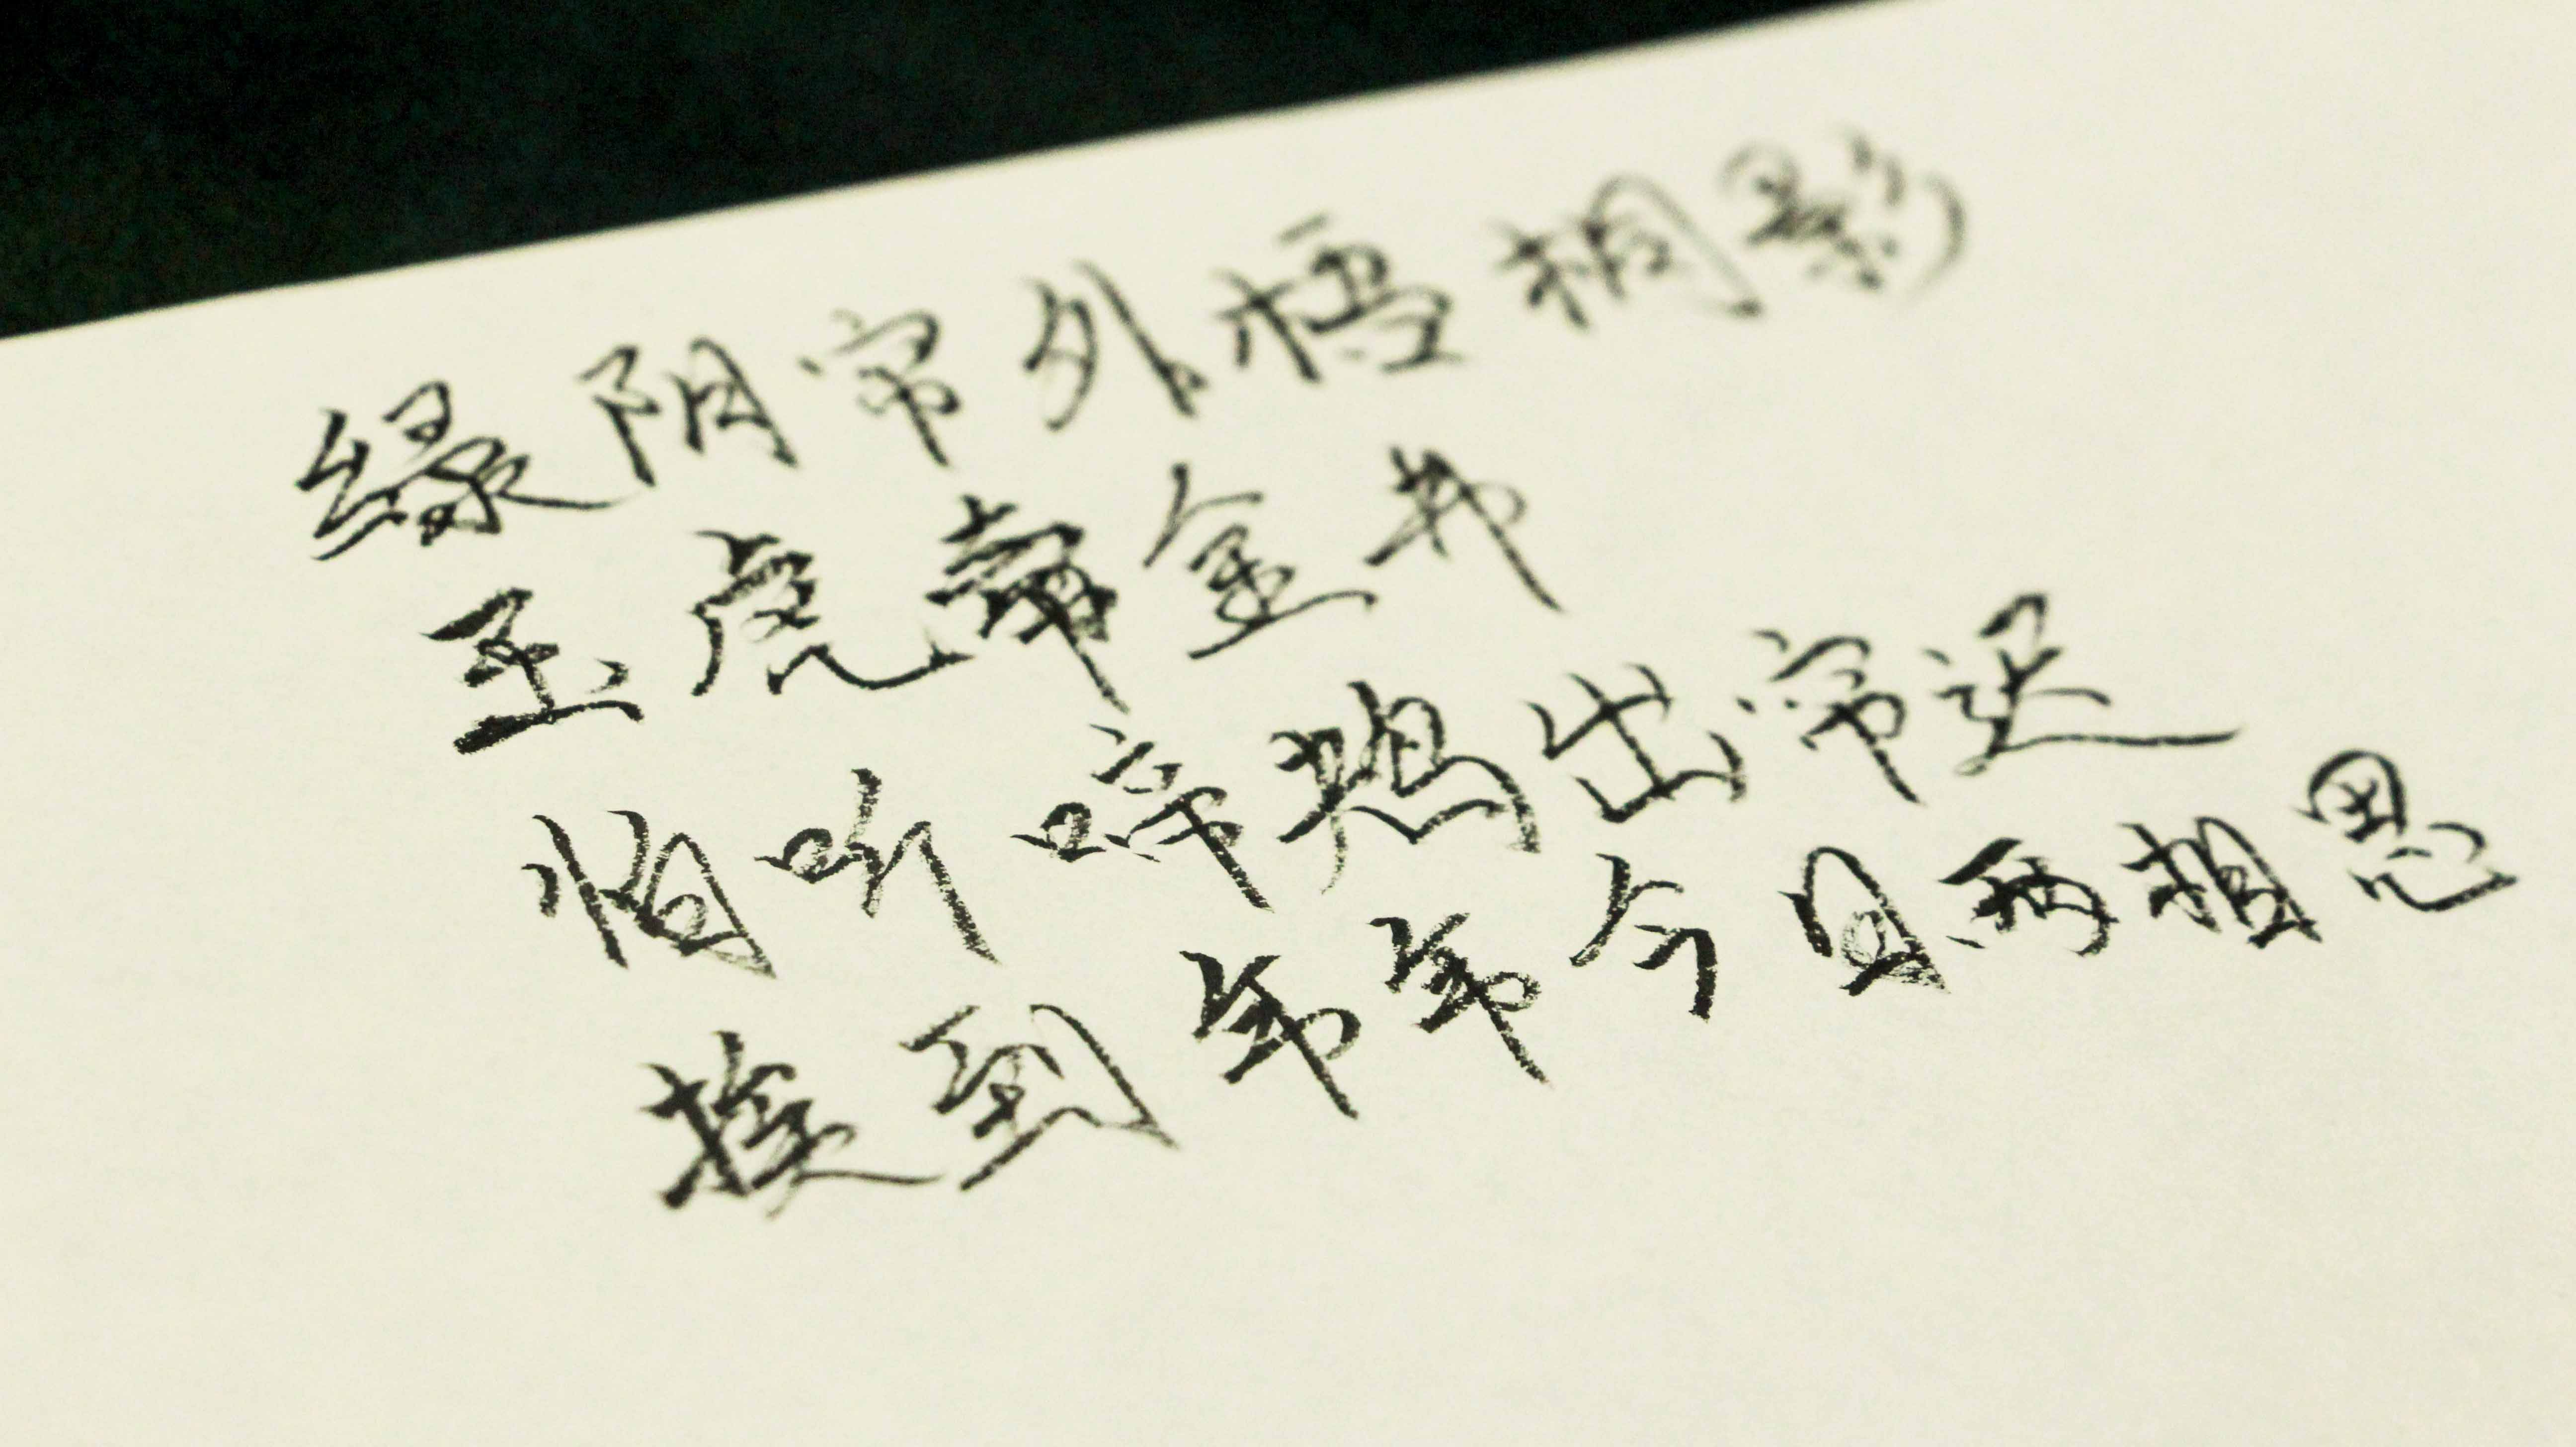 绿阴帘外梧桐影
玉虎牵金井
怕听啼鴂出帘迟
挨到年年今日两相思